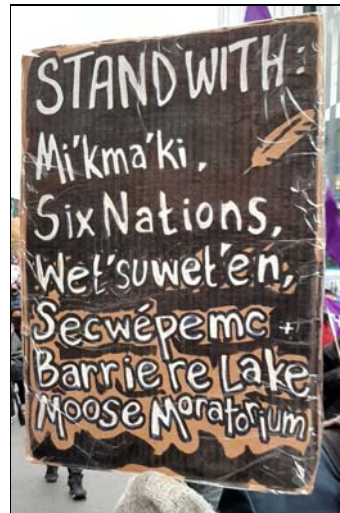 STAND WITH:
Mi'kma'ki,
Six Nations,
Wet'suwet'en,
Secwépemc +
Barriere Lake
Moose Moratorium.